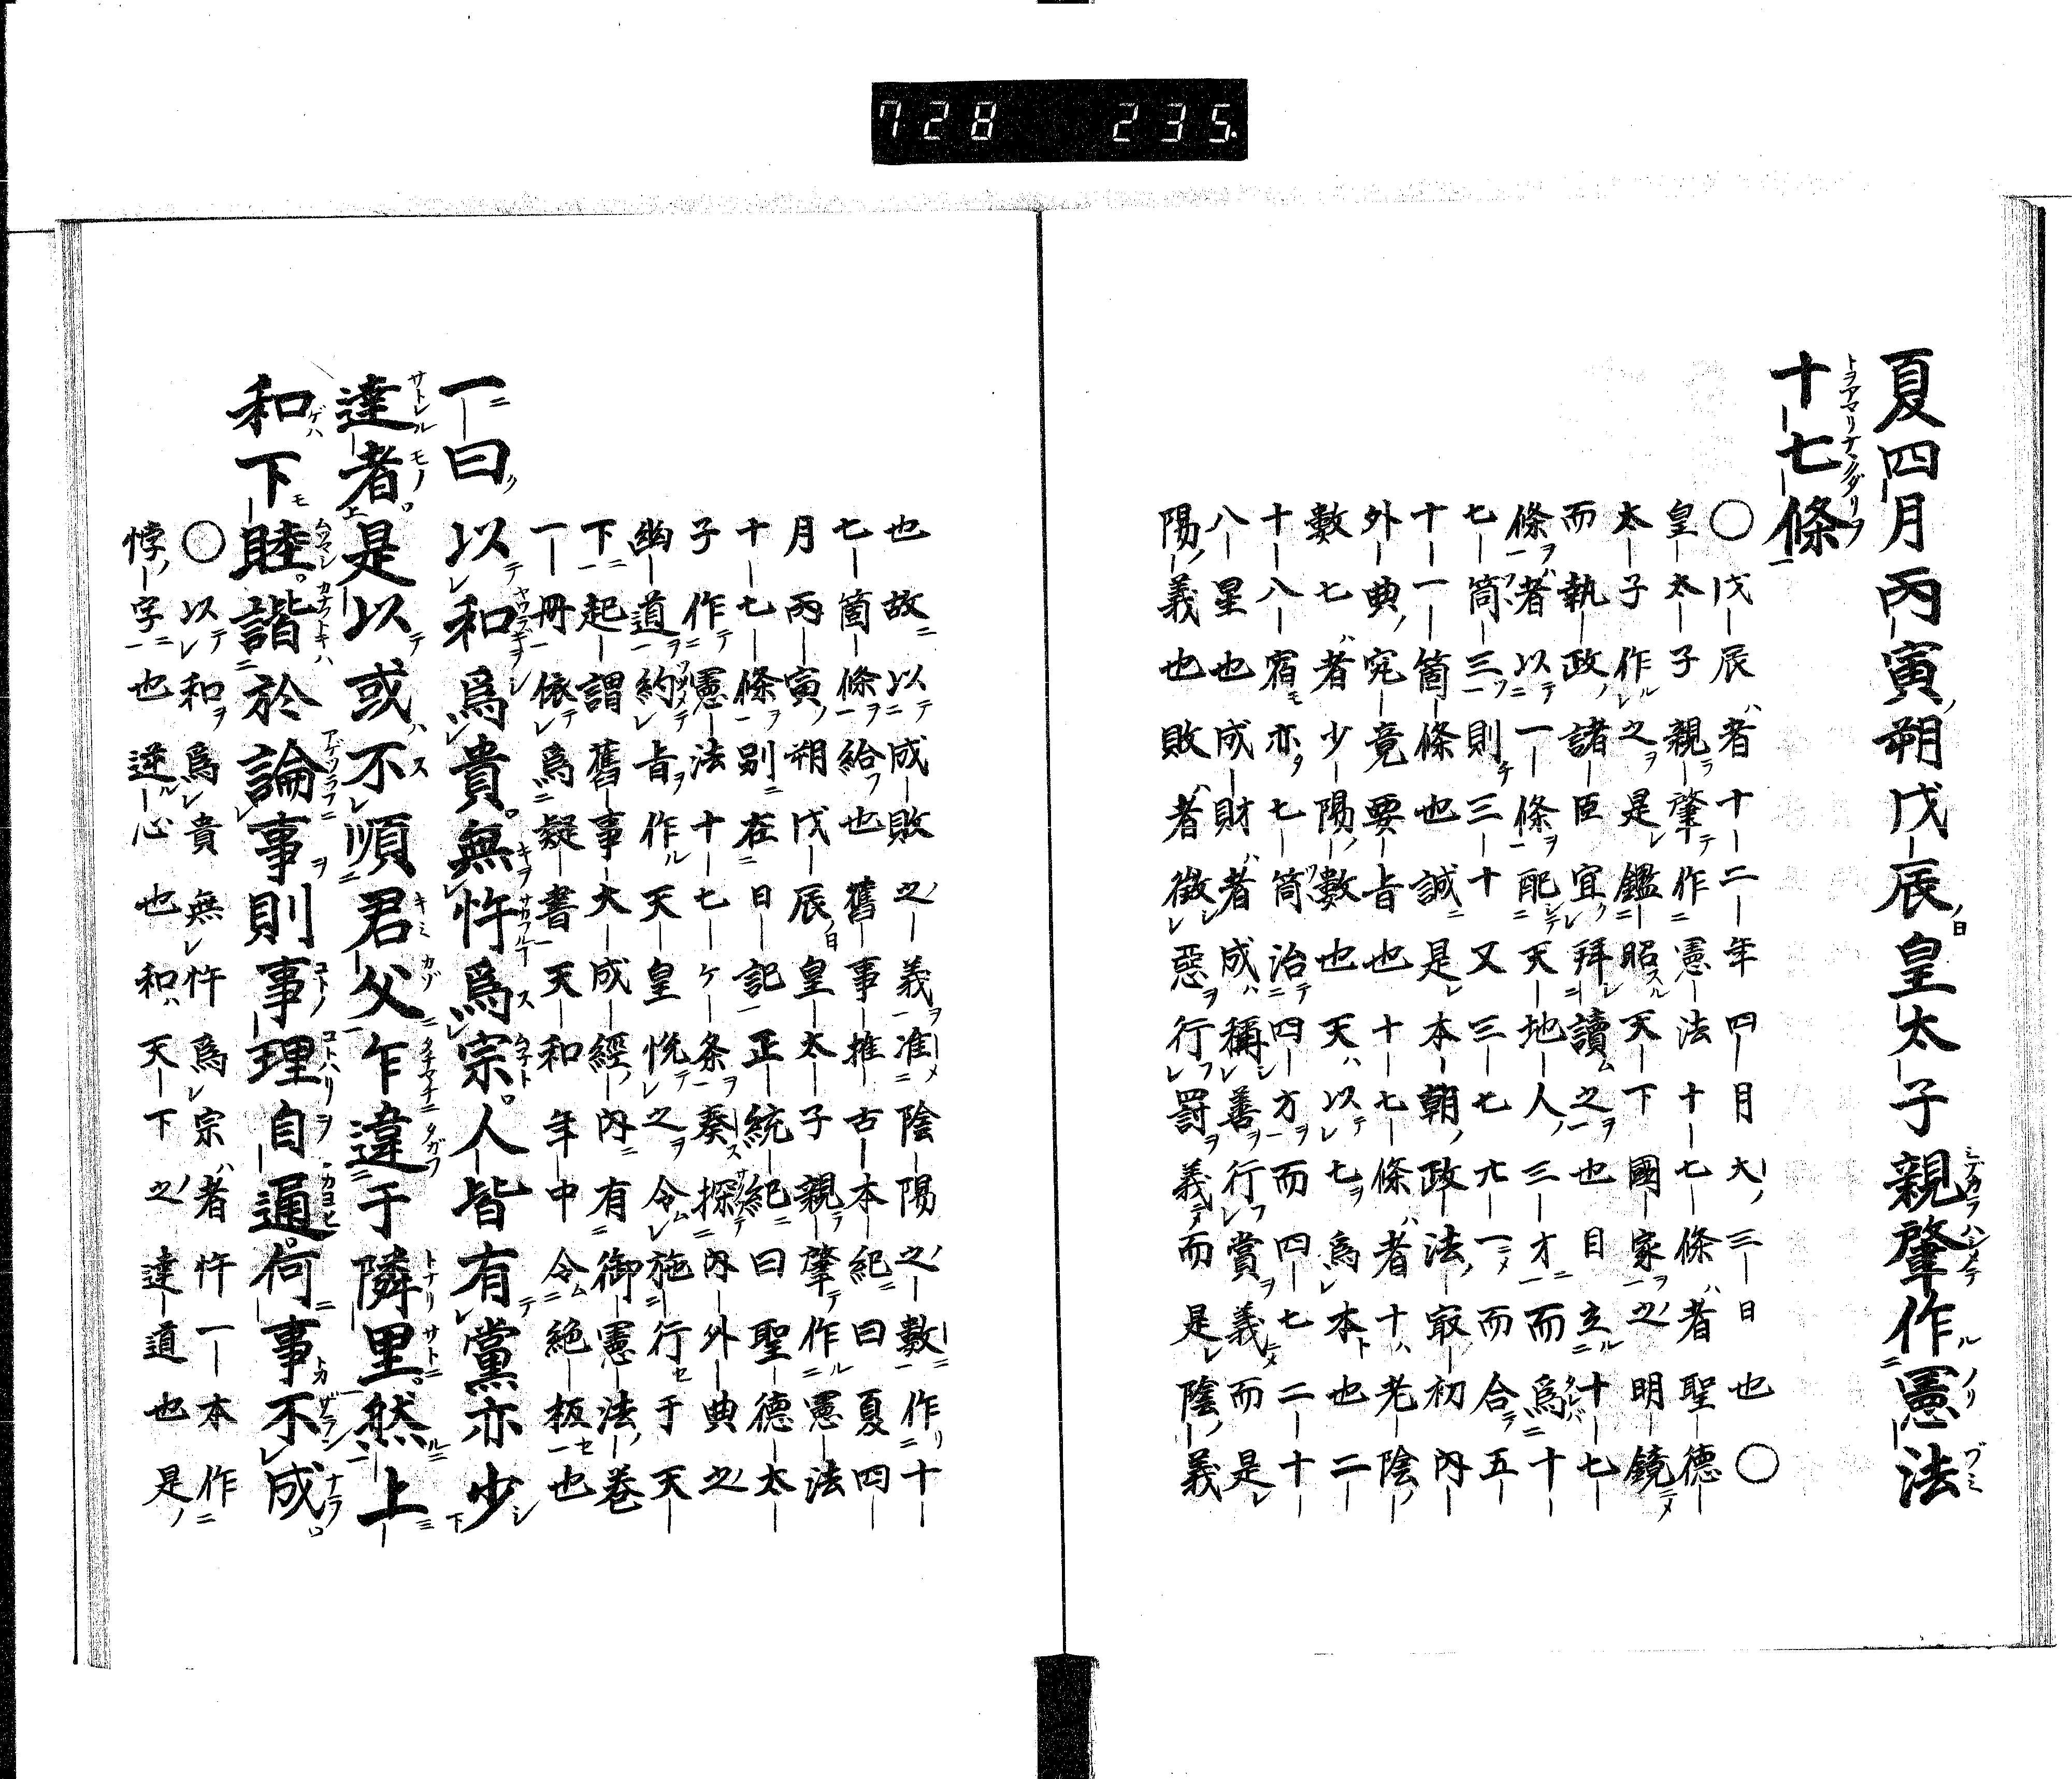 728 235.
夏四月丙寅朔戊辰皇太子親肇作憲法
十七條
〇戊辰者十二年四月大三日也〇
皇太子親肇作憲法十七條者聖德
太子作之是鑑昭天下國家之明鏡
而執政諸臣宜拜讀之也目立十七
條者以一條配天地人三才而爲十
七箇三則三十又三七六一而合五
十一箇條也誠是本朝政法最初內
外典究竟要旨也十七條者十老陰
數七者少陽數也天以七爲本也二
十八宿亦七箇治四方而四七二十
八星也成財者成稱善行賞義而是
陽義也敗者徵惡行罸義而是陰義
也故以成敗之義准陰陽之數作十
七箇條給也舊事推古本紀曰夏四
月丙寅朔戊辰皇太子親肇作憲法
十七條別在日記正統紀曰聖德太
子作憲法十七ケ条奏探內外典之
幽道約旨作天皇悅之令施行于天
下起謂舊事大成經內有御憲法卷
一冊依爲疑書天和年中令絕板也
一曰以和爲貴無忤爲宗人皆有黨亦少
達者是以或不順君父乍違于隣里然上
和下睦諧於論事則事理自通何事不成
〇以和爲貴無忤爲宗者忤一本作
悖字也逆心也和天下之達道也是